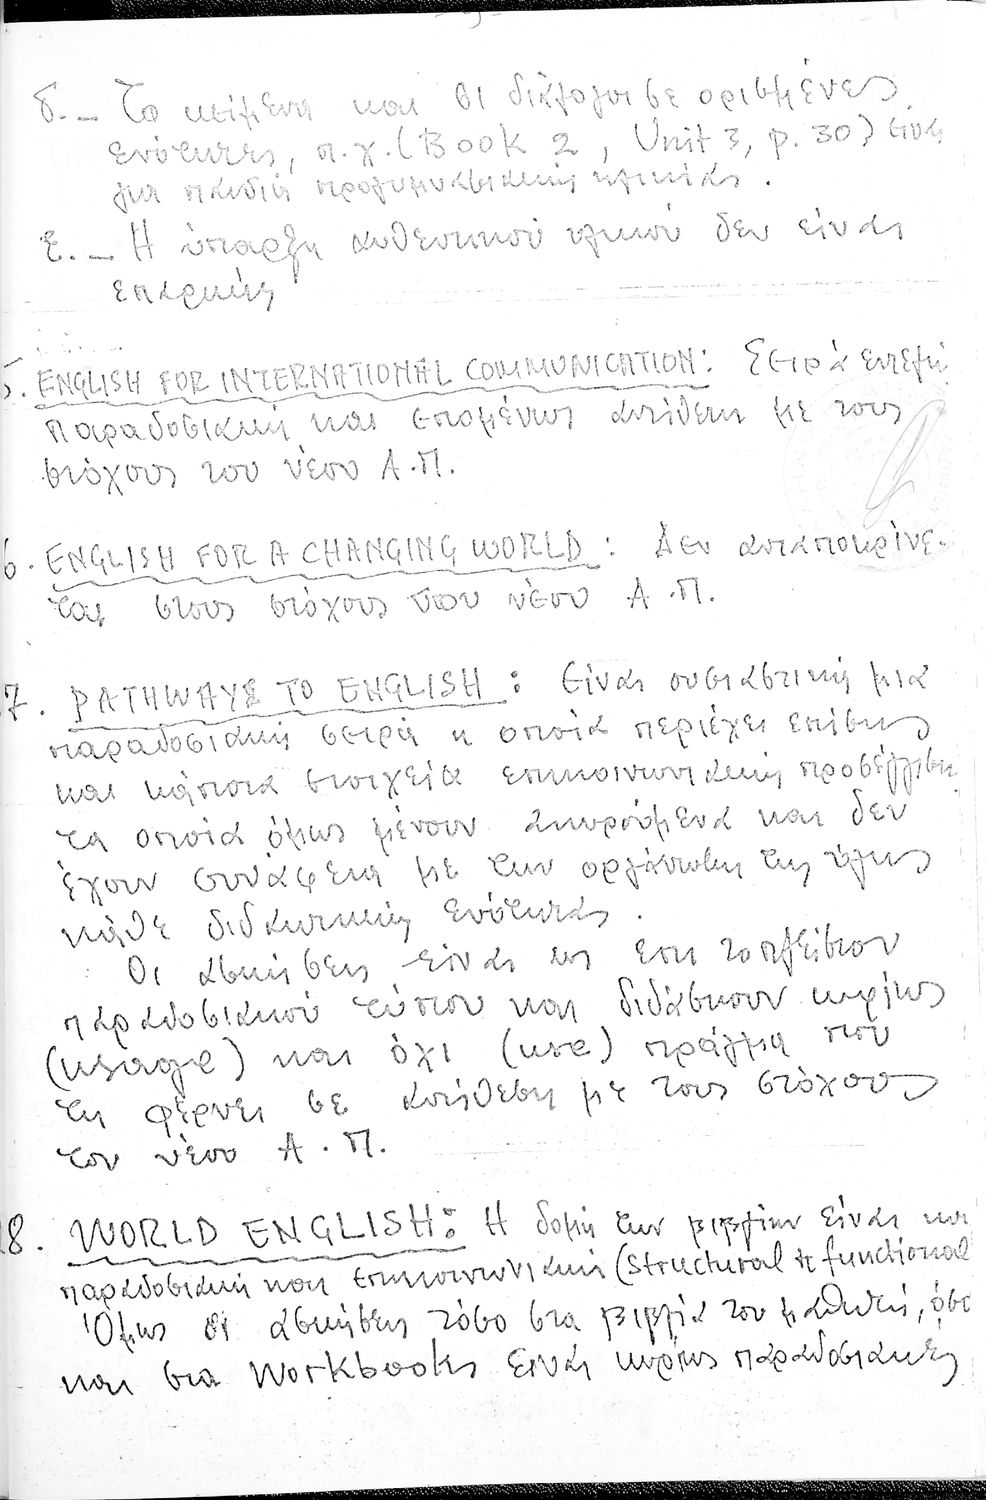 - 5 -
δ. – Τα κείμενα και οι διάλογοι σε ορισμένες
ενότητες, π.χ. (Book 2, Unit 3, p. 30) είναι
για παιδιά προγυμνασιακής ηλικίας.
ε. – Η ύπαρξη αυθεντικού υλικού δεν είναι
επαρκής
5. ENGLISH FOR INTERNATIONAL COMMUNICATION: Σειρά εντελώ
παραδοσιακή και επομένως αντίθετη με τους
στόχους του νέου Α.Π.
6. ENGLISH FOR A CHANGING WORLD: Δεν ανταποκρίνε-
ται στους στόχους του νέου Α.Π.
7. PATHWAYS TO ENGLISH: Είναι ουσιαστική μια
παραδοσιακή σειρά η οποία περιέχει επίσης
και κάποια στοιχεία επικοινωνιακής προσέγγιση
τα οποία όμως μένουν ακυρούμενα και δεν
έχουν συνάφεια με την οργάνωση της ύλης
κάθε διδακτικής ενότητας.
Οι ασκήσεις είναι ως επί το πλείστον
παραδοσιακού τύπου και διδάσκουν κυρίως
(usage) και όχι (use) πράγμα που
τη φέρνει σε αντίθεση με τους στόχους
του νέου Α.Π.
18. WORLD ENGLISH: Η δομή των βιβλίων είναι και
παραδοσιακή και επικοινωνιακή (structural & functional
Όμως οι ασκήσεις τόσο στα βιβλία του μαθητή, όσο
και στα Workbooks είναι κυρίως παραδοσιακές